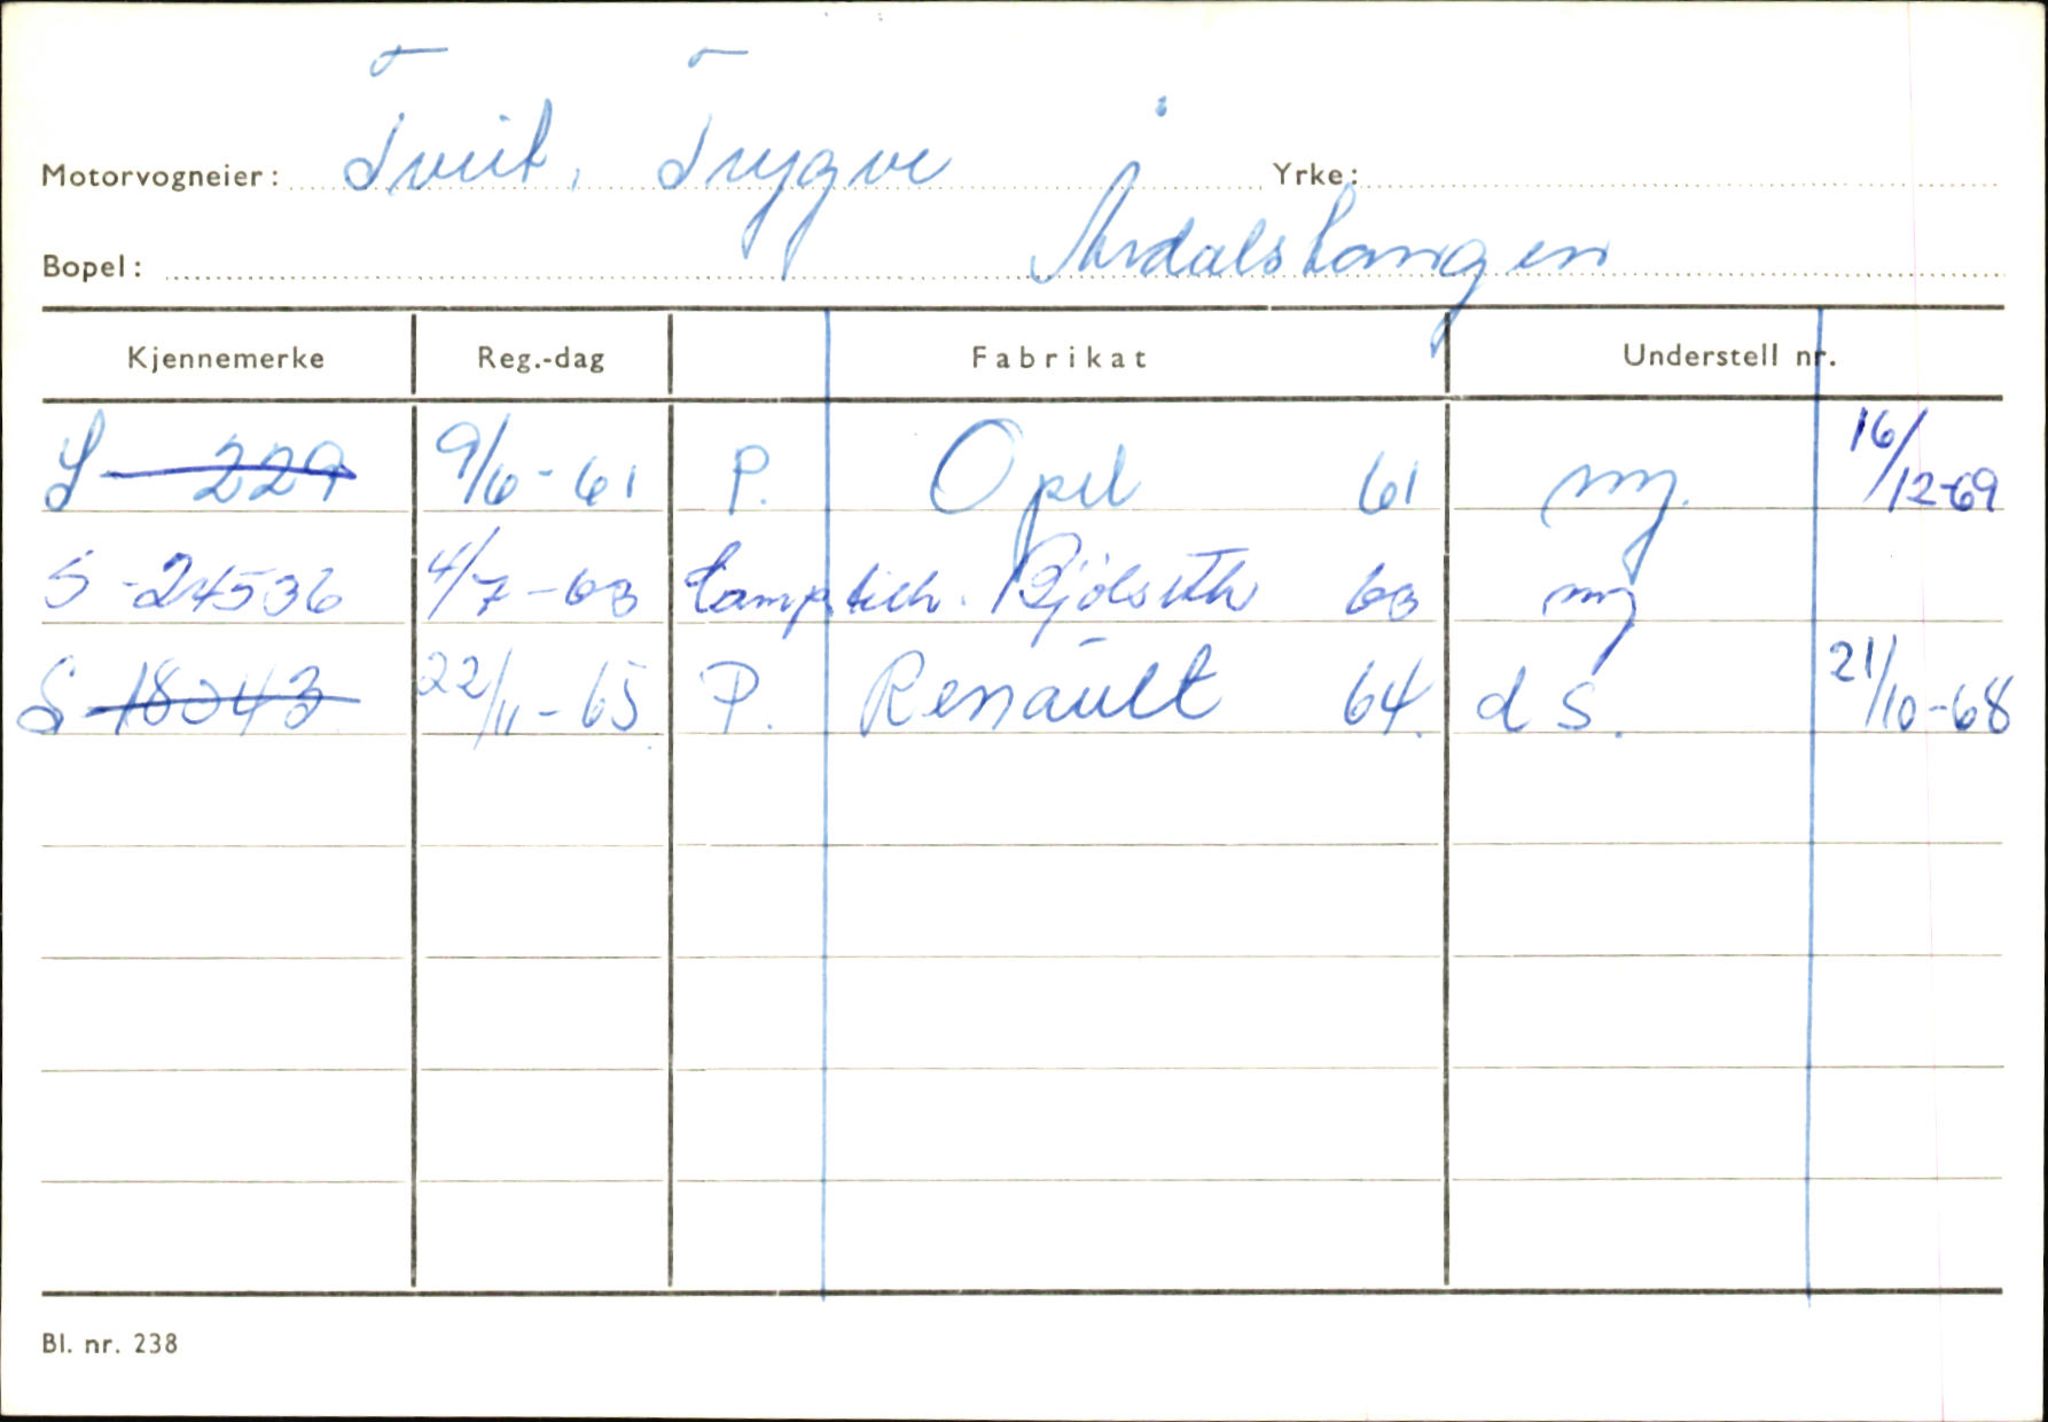 Motorvogneier: Tveit, Trygve Yrke:
Bopel: Årdalstangen
Kjennemerke Reg.-dag Fabrikat Understell nr.
S - 229 9/6-61 P. Opel 61 ny. 16/12-69
S-24536 4/7-63 Bjölseth 63 ny
S-18343 22/11-65 P. Renault 64. d S. 21/10-68
Bl. nr. 238